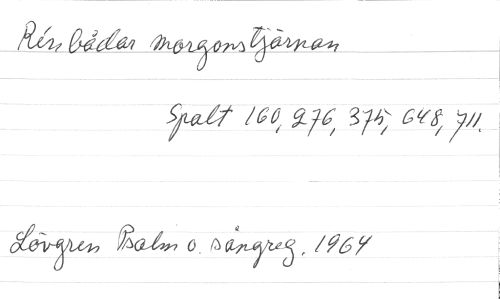 Rén bådar morgonstjärnan
Spalt 160, 276, 375, 648, 711.
Lövgren Psalm o. sångreg. 1964